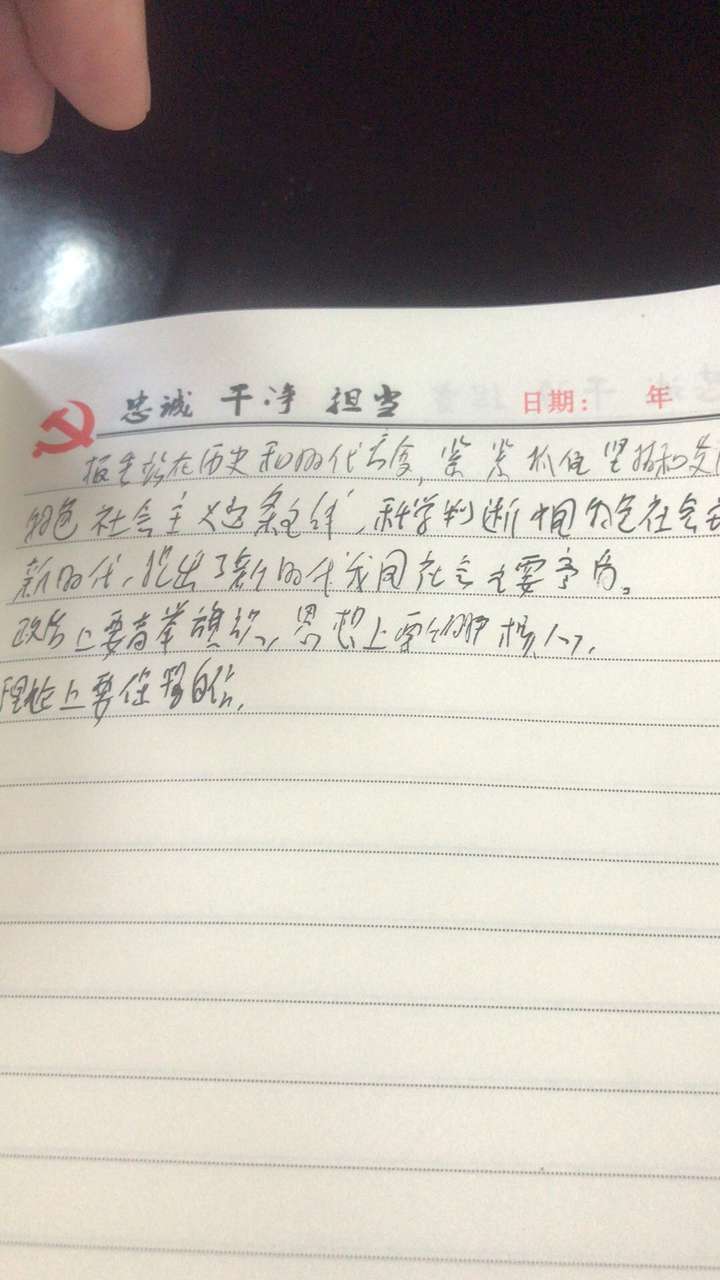 忠诚 干净 担当 日期: 年
报告站在历史和时代高度,紧紧抓住坚持和发
特色社会主义这条主线,科学判断中国特色社会主
新时代,提出了新时代我国社会主要矛盾。
政治上要高举旗帜,思想上要维护核心,
理论上要保持自信,